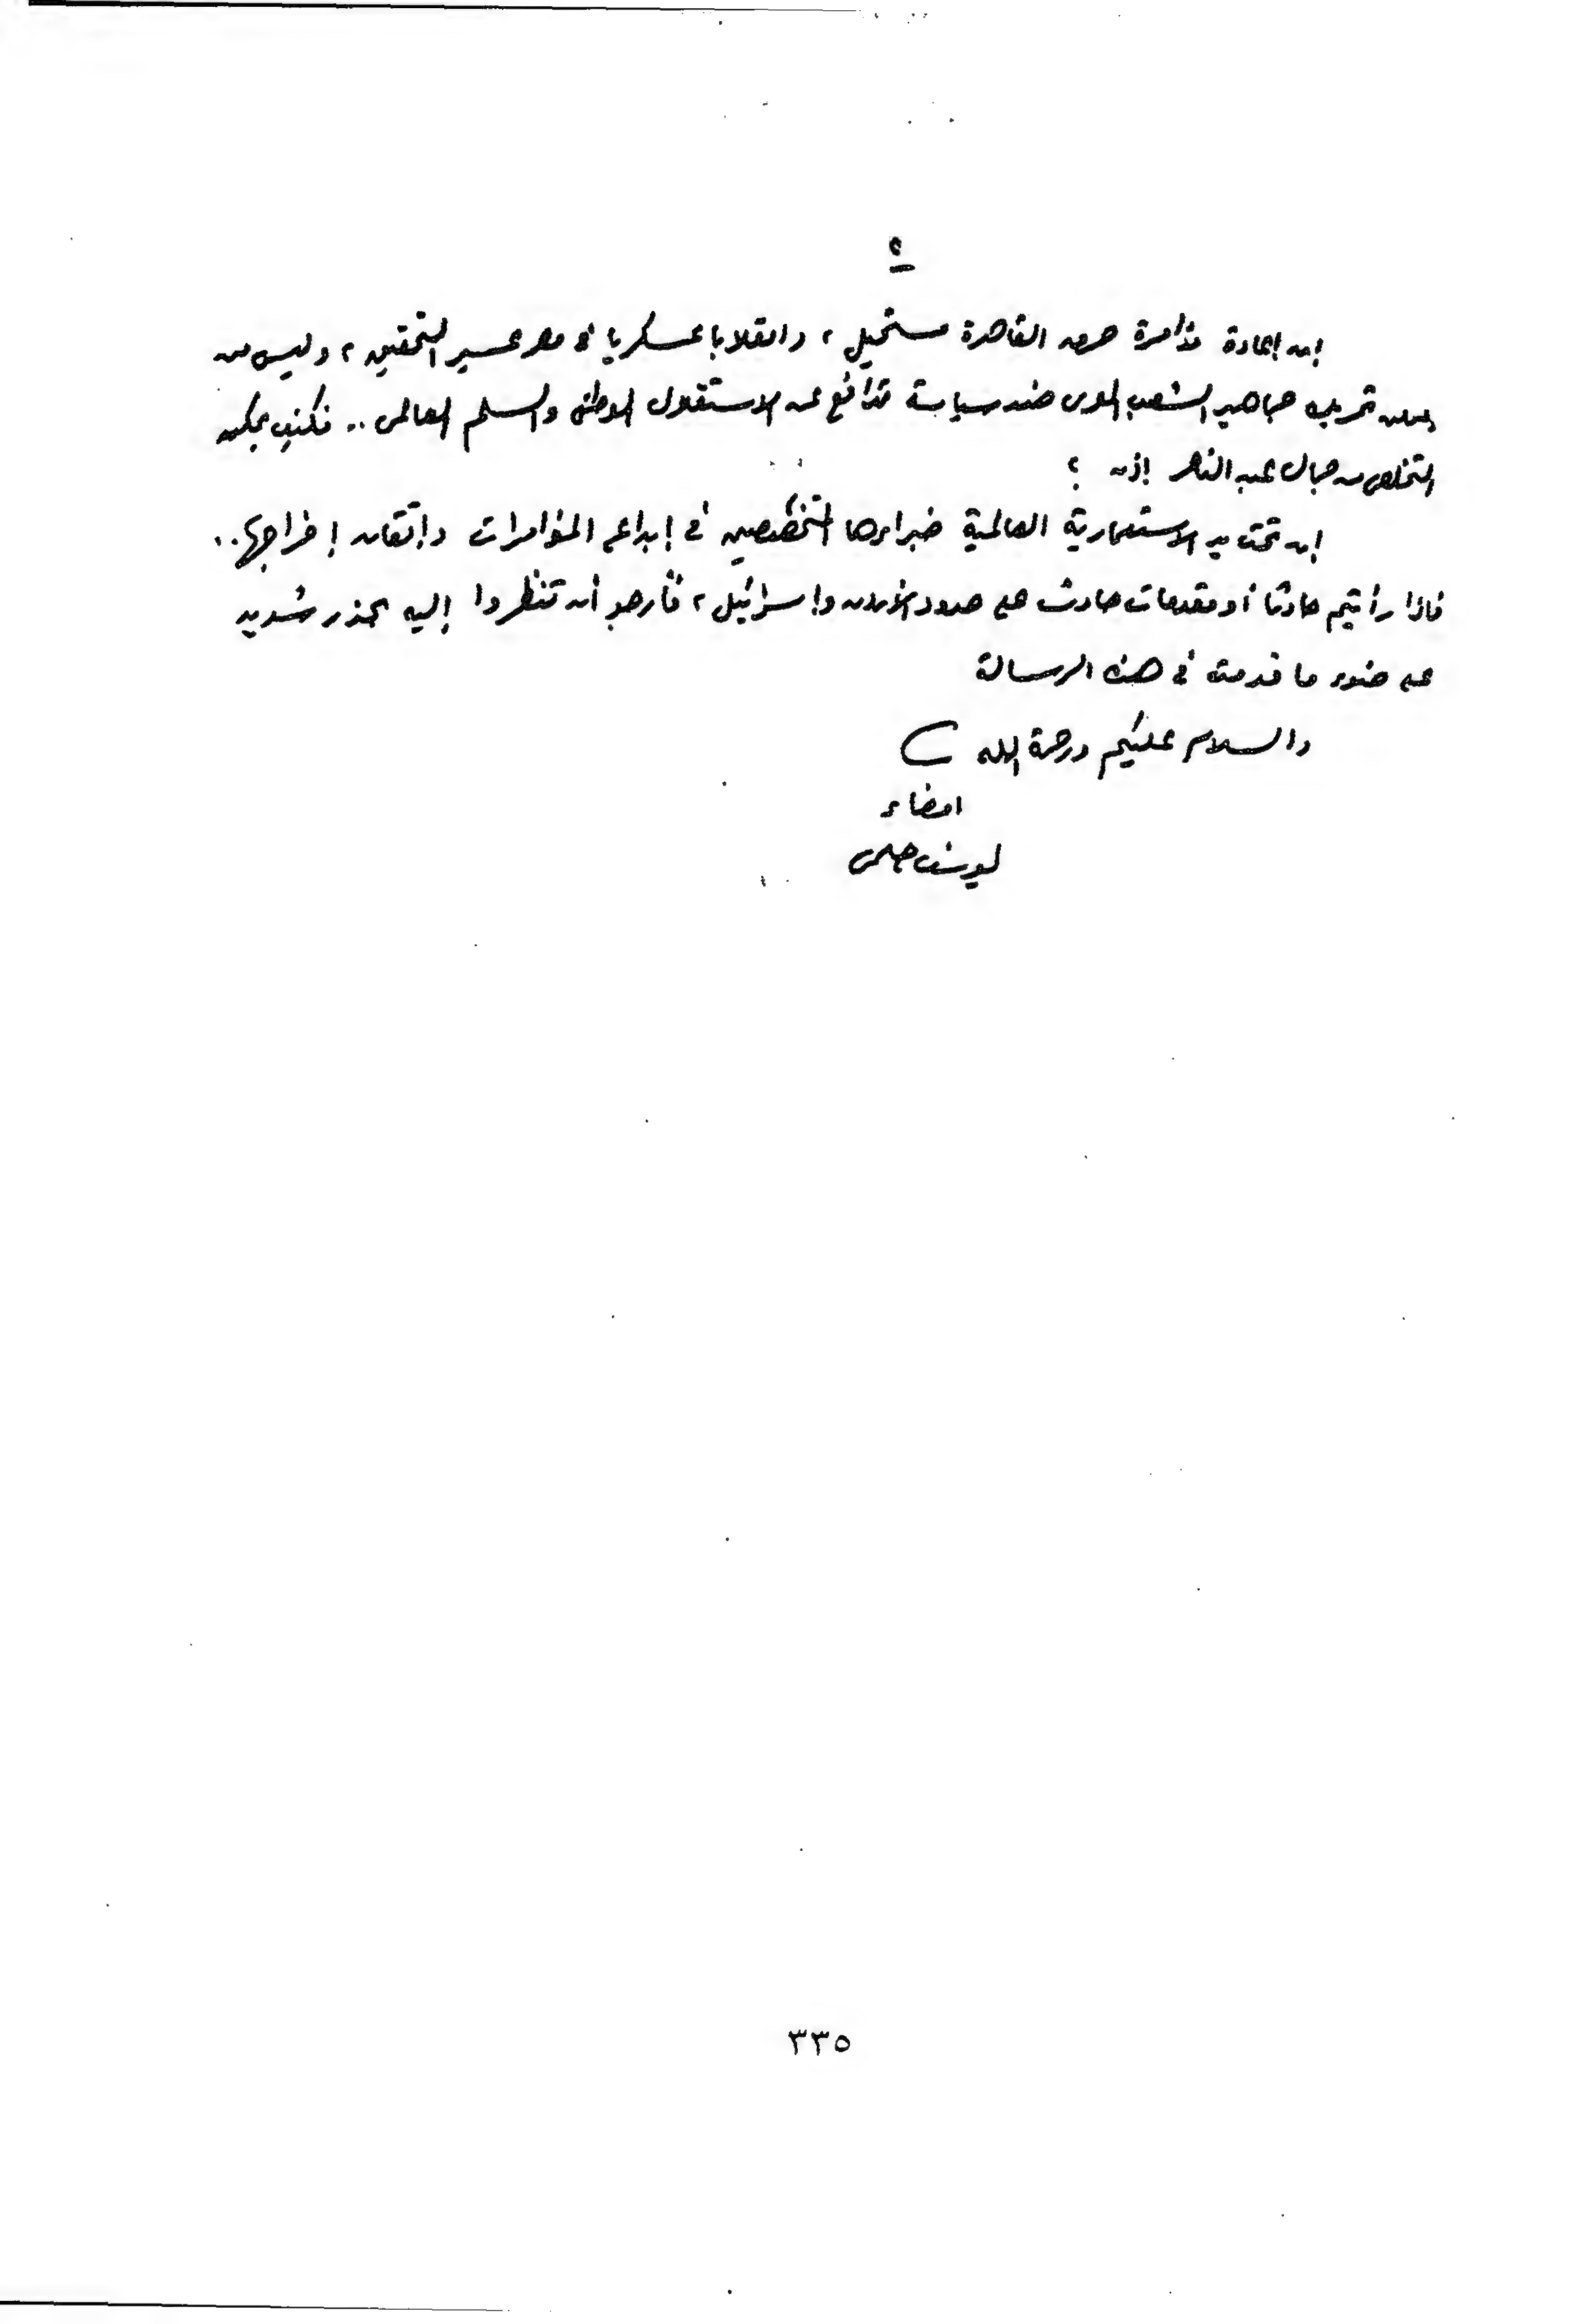 ٩
إن إعادة مؤامرة حريق القاهرة مستحيل ، وانقلابا عسكريا في مصر عسير التحقيق ، وليس من
تحريك جماهير الشعب المصرى ضد سياسة تدافع عن الاستقلال الوطنى والسلم العالمى .. فكيف يمكن
التخلص من جمال عبد الناصر إذن ؟
إن تحت يد الاستعمارية العالمية خبراءها المتخصصين في إبداع المؤامرات وإتقان إخراجها ..
فإذا رأيتم حادثا أو مقدمات حادث على حدود الأردن وإسرائيل ، فأرجو أن تنظروا إليه بحذر شديد
على ضوء ما قدمت في هذه الرسالة
والسلام عليكم ورحمة الله
امضاء
يوسف حلمى
٣٣٥